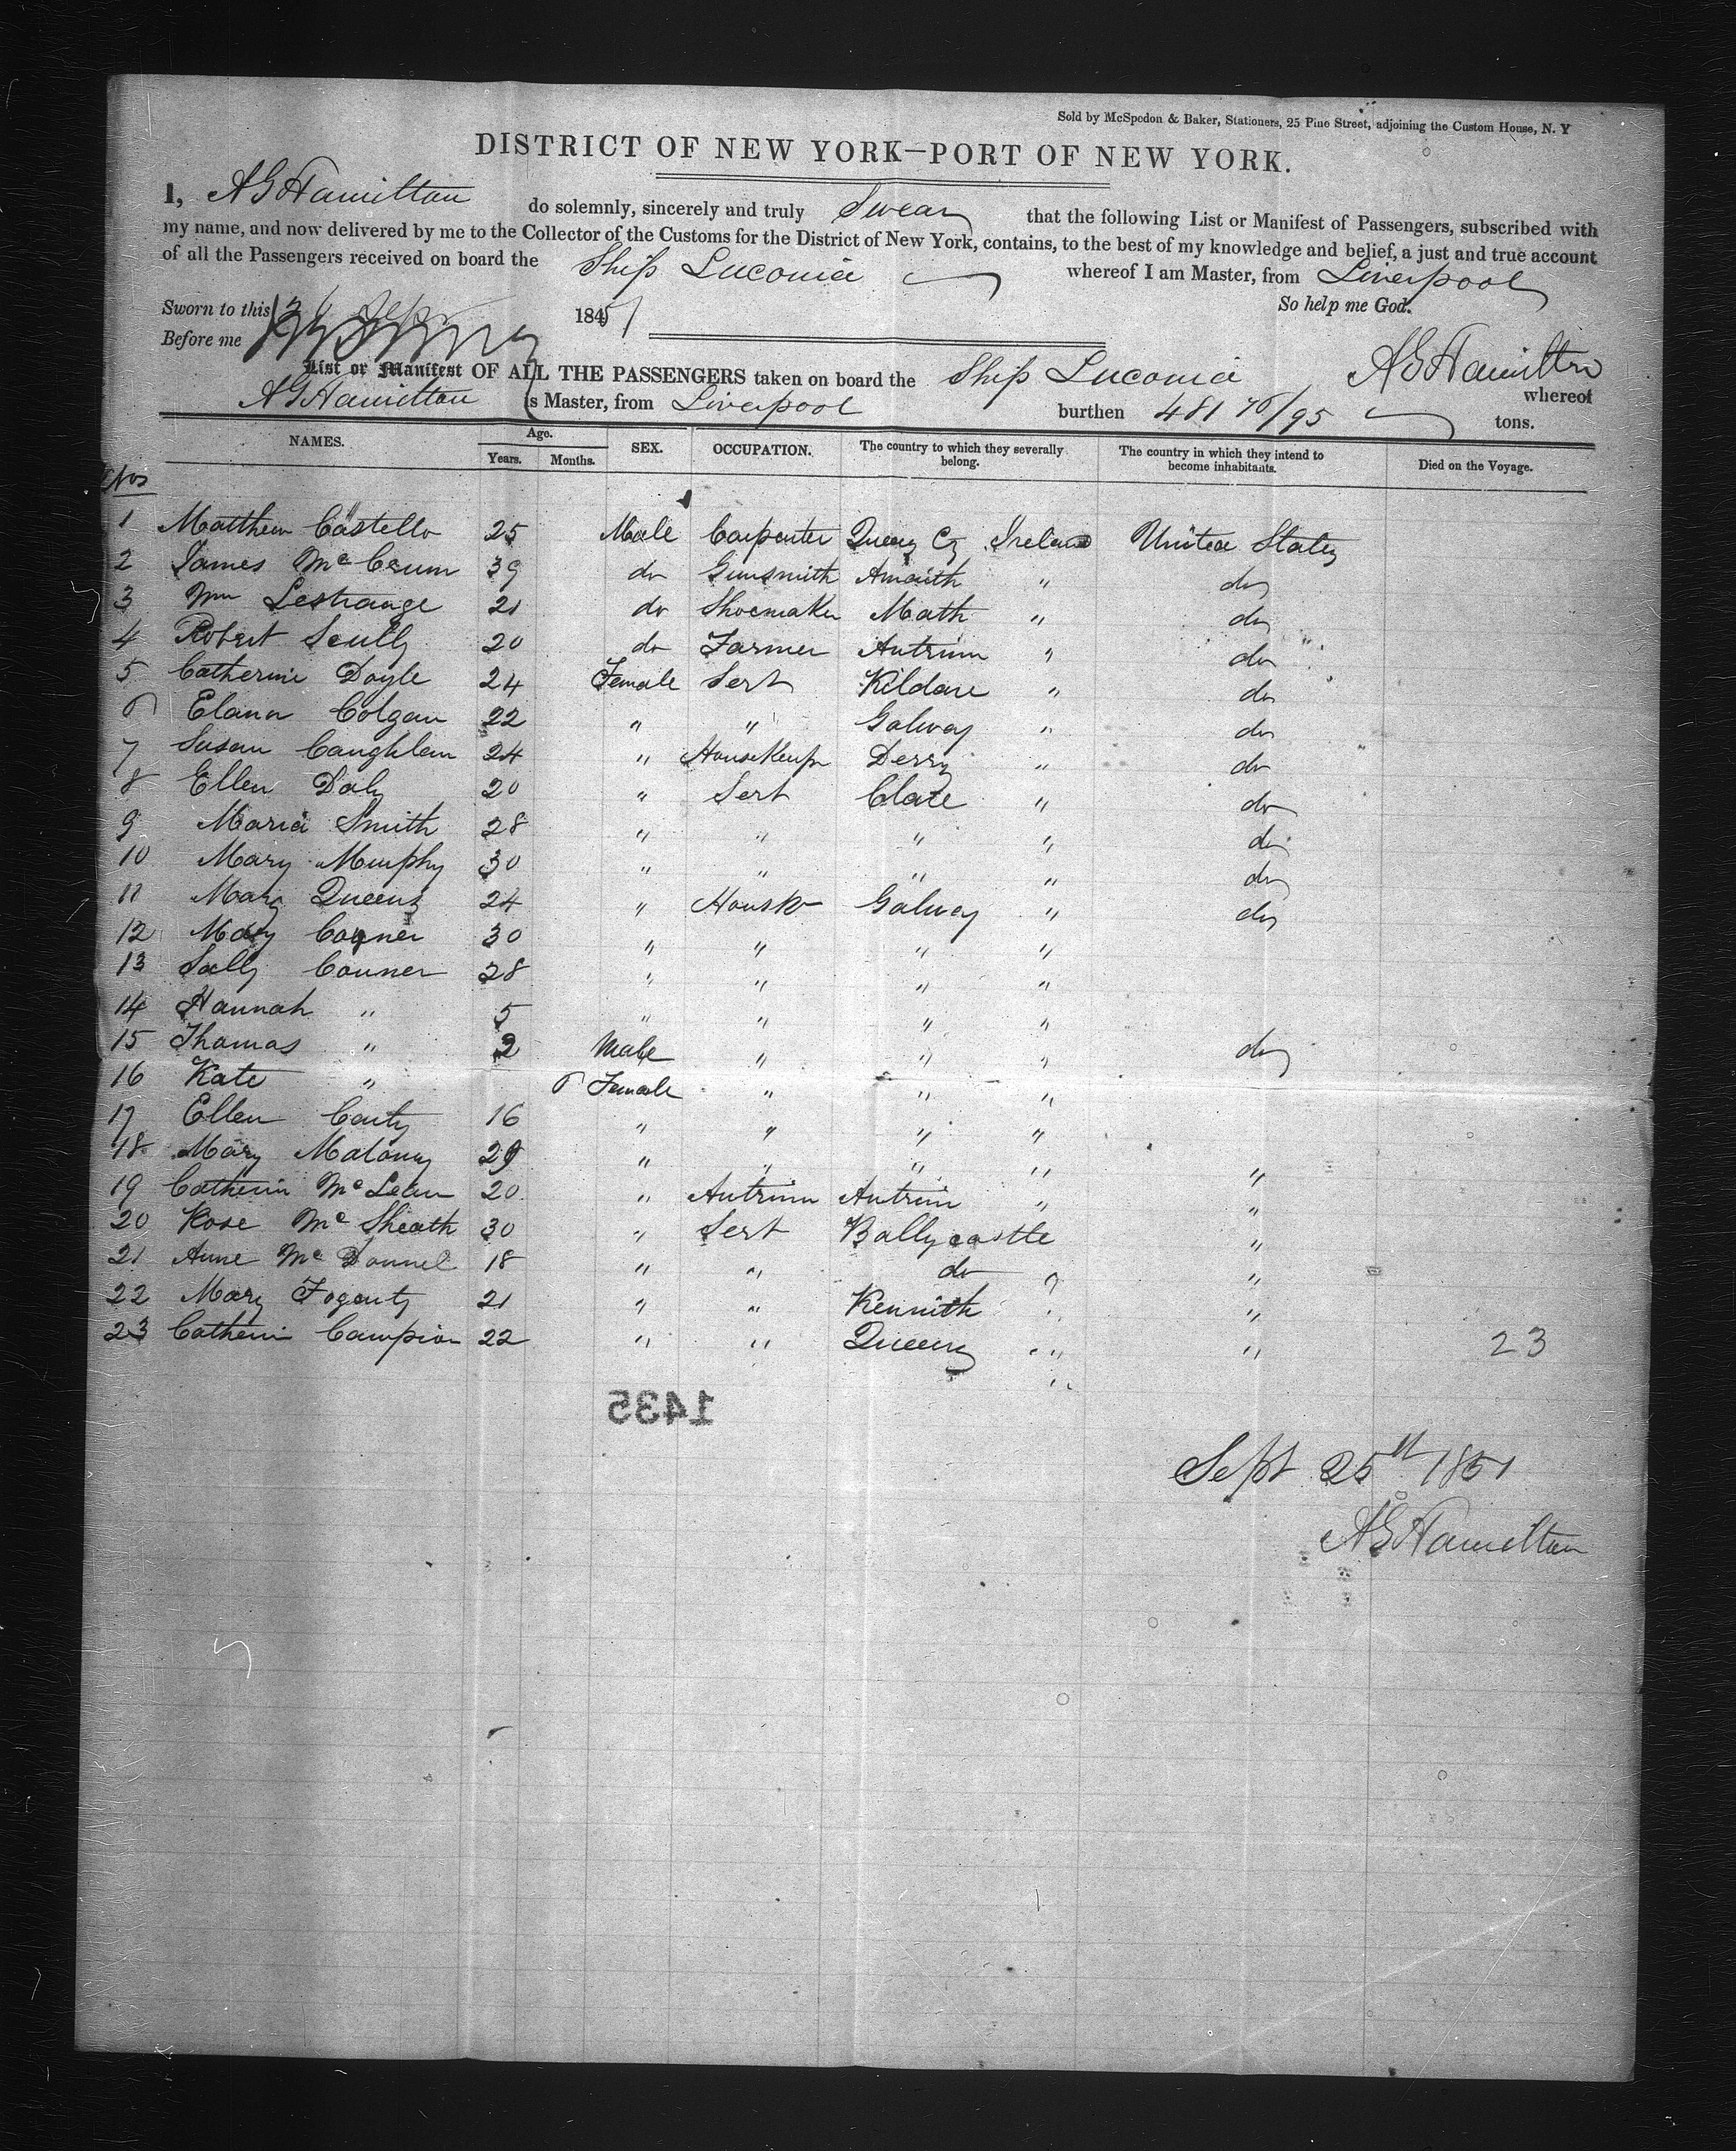 Sold by McSpedon & Baker, Stationers, 25 Pine Street, adjoining the Custom House, N. Y
DISTRICT OF NEW YORK—PORT OF NEW YORK.
I, A G Hamilton do solemnly, sincerely and truly Swear that the following List or Manifest of Passengers, subscribed with
my name, and now delivered by me to the Collector of the Customs for the District of New York, contains, to the best of my knowledge and belief, a just and true account
of all the Passengers received on board the Ship Luconia whereof I am Master, from Liverpool
So help me God.
Sworn to this 26 Sept 1851
Before me
A G Hamilton
List or Manifest OF ALL THE PASSENGERS taken on board the Ship Luconia whereof
A G Hamilton is Master, from Liverpool burthen 481 76/95 tons.
NAMES. Age. SEX. OCCUPATION. The country to which they severally belong. The country in which they intend to become inhabitants. Died on the Voyage.
Years. Months.
Nos
1 Matthew Costello 25 Male Carpenter Queens Cy Ireland United States
2 James McCrum 39 do Gunsmith " do
3 Wm Lestrange 21 do Shoemaker Math " do
4 Robert Scully 20 do Farmer Antrim " do
5 Catherine Doyle 24 Female Sert Kildare " do
6 Elann Colgan 22 " " Galway " do
7 Susan Caughlan 24 " HouseKeepr Derry " do
8 Ellen Daly 20 " Sert Clare " do
9 Maria Smith 28 " " " " do
10 Mary Murphy 30 " " " " do
11 Mary Queens 24 " Housk Galway " do
12 Mary Conner 30 " " " "
13 Sally Conner 28 " " " "
14 Hannah " 5 " " " "
15 Thomas " 2 Male " " " do
16 Kate " 6 Female " " "
17 Ellen Canty 16 " " " "
18 Mary Malony 29 " " " " "
19 Catherin McLean 20 " Antrim Antrim " "
20 Rose McSheath 30 " Sert Ballycastle "
21 Anne McDonnel 18 " " do " "
22 Mary Fogarty 21 " " Kennith " "
23 Catherin Campion 22 " " Queens " " 23
1435
Sept 25th 1851
A G Hamilton